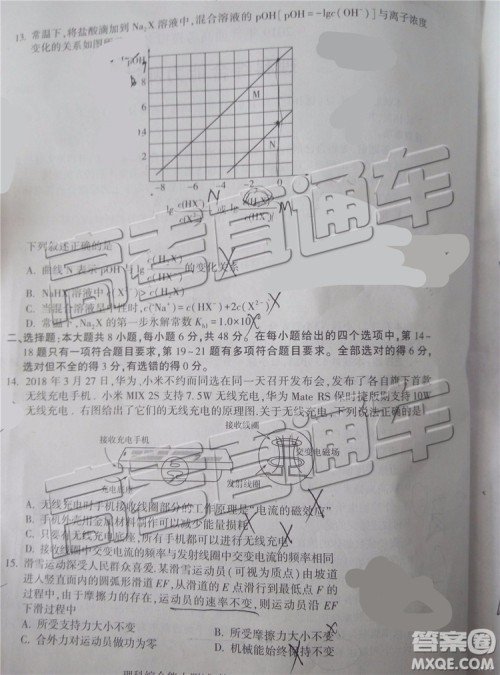 13. 常温下,将盐酸滴加到 Na₂X 溶液中,混合溶液的 pOH[pOH=-lgc(OH⁻)]与离子浓度
变化的关系如图
pOH
8
6
4
2
M
N
-8 -6 -4 -2 0
lg c(HX⁻)/c(X²⁻) 或 lg c(H₂X)/c(HX⁻)
N M
下列叙述正确的是
A. 曲线 N 表示 pOH 与 lg c(H₂X)/c(HX⁻) 的变化关系
B. NaHX 溶液中 c(X²⁻)>c(H₂X)
C. 当混合溶液呈中性时,c(Na⁺)=c(HX⁻)+2c(X²⁻) X
D. 常温下,Na₂X 的第一步水解常数 Kh1=1.0×10 X
二、选择题:本大题共 8 小题,每小题 6 分,共 48 分。在每小题给出的四个选项中,第 14~
18 题只有一项符合题目要求,第 19~21 题有多项符合题目要求。全部选对的得 6 分,
选对但不全的得 3 分,有选错的得 0 分。
14. 2018 年 3 月 27 日,华为、小米不约而同选在同一天召开发布会,发布了各自旗下首款
无线充电手机. 小米 MIX 2S 支持 7.5W 无线充电,华为 Mate RS 保时捷版则支持 10W
无线充电. 右图给出了它们的无线充电的原理图. 关于无线充电,下列说法正确的是
接收充电手机
接收线圈
交变电磁场
充电底座
发射线圈
A. 无线充电时手机接收线圈部分的工作原理是“电流的磁效应” X
B. 手机外壳用金属材料制作可以减少能量损耗 X
C. 只要有无线充电底座,所有手机都可以进行无线充电 X
D. 接收线圈中交变电流的频率与发射线圈中交变电流的频率相同
15. 滑雪运动深受人民群众喜爱. 某滑雪运动员(可视为质点)由坡道
进入竖直面内的圆弧形滑道 EF,从滑道的 E 点滑行到最低点 F 的
过程中,由于摩擦力的存在,运动员的速率不变,则运动员沿 EF
下滑过程中
A. 所受支持力大小不变 X
B. 所受摩擦力大小不变 X
C. 合外力对运动员做功为零
D. 机械能始终保持不变 X
高考直通车
答案圈
MXQE.COM